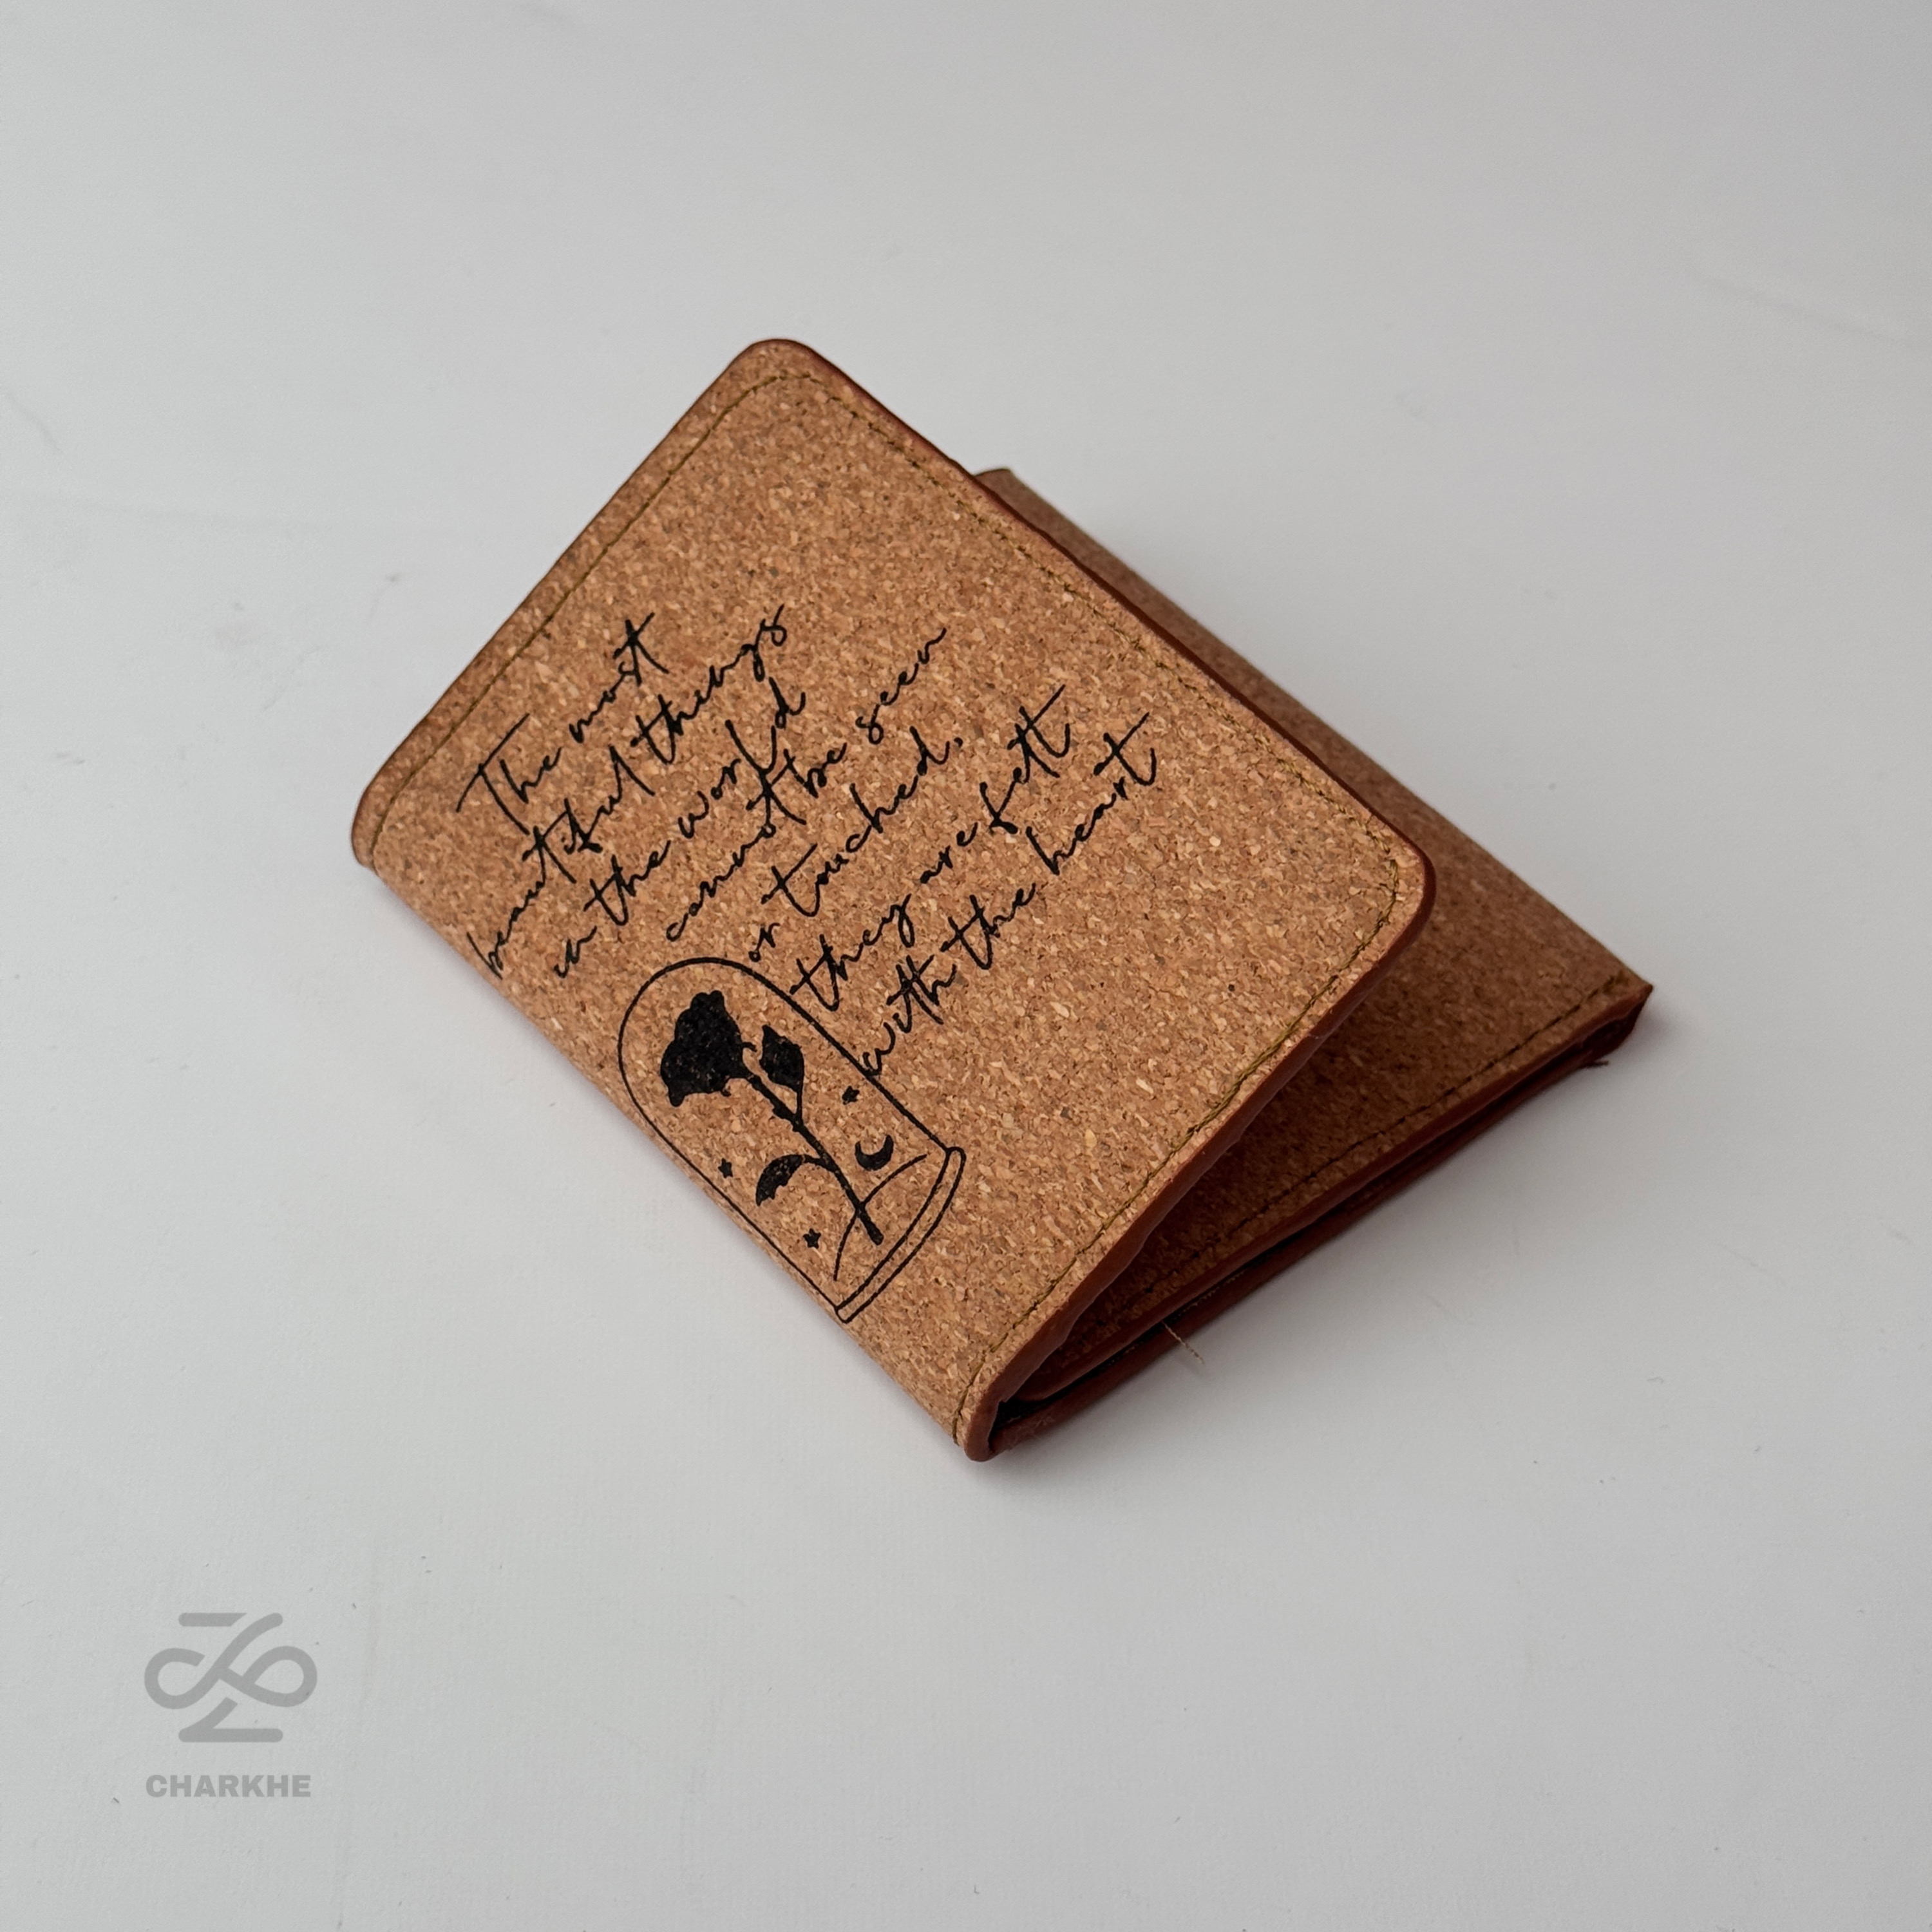 The most
beautiful things
in the world
cannot be seen
or touched,
they are felt
with the heart
CHARKHE